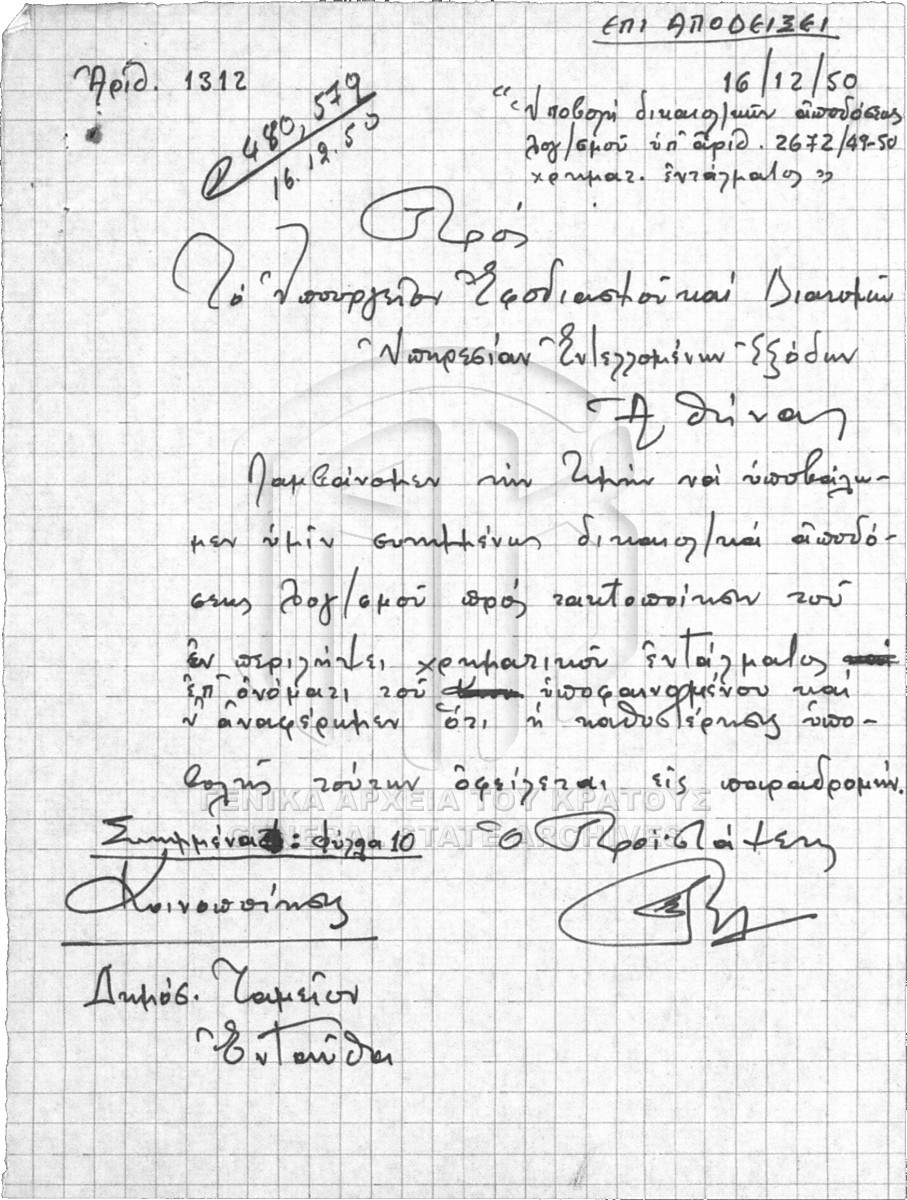 ΕΠΙ ΑΠΟΔΕΙΞΕΙ
Ἀριθ. 1312
16/12/50
480,579
16.12.50
"Ὑποβολή δικαιολ/κῶν ἀποδόσεως
λογ/σμοῦ ὑπ' ἀριθ. 2672/49-50
χρηματ. ἐντάλματος"
Πρός
Τό Ὑπουργεῖον Ἐφοδιασμοῦ καί Διανομῶν
Ὑπηρεσίαν Ἐντελλομένων Ἐξόδων
Ἀθήνας
Λαμβάνομεν τήν τιμήν νά ὑποβάλω-
μεν ὑμῖν συνημμένως δικαιολ/κά ἀποδό-
σεως λογ/σμοῦ πρός τακτοποίησιν τοῦ
ἐν περιλήψει χρηματικοῦ ἐντάλματος
ἐπ' ὀνόματι τοῦ ὑποφαινομένου καί
ν' ἀναφέρωμεν ὅτι ἡ καθυστέρησις ὑπο-
βολῆς τούτων ὀφείλεται εἰς παραδρομήν.
ΓΕΝΙΚΑ ΑΡΧΕΙΑ ΤΟΥ ΚΡΑΤΟΥΣ
GENERAL STATE ARCHIVES
Συνημμένα: φύλλα 10
Ὁ Προϊστάμενος
Κοινοποίησις
Δημόσ. Ταμεῖον
Ἐνταῦθα